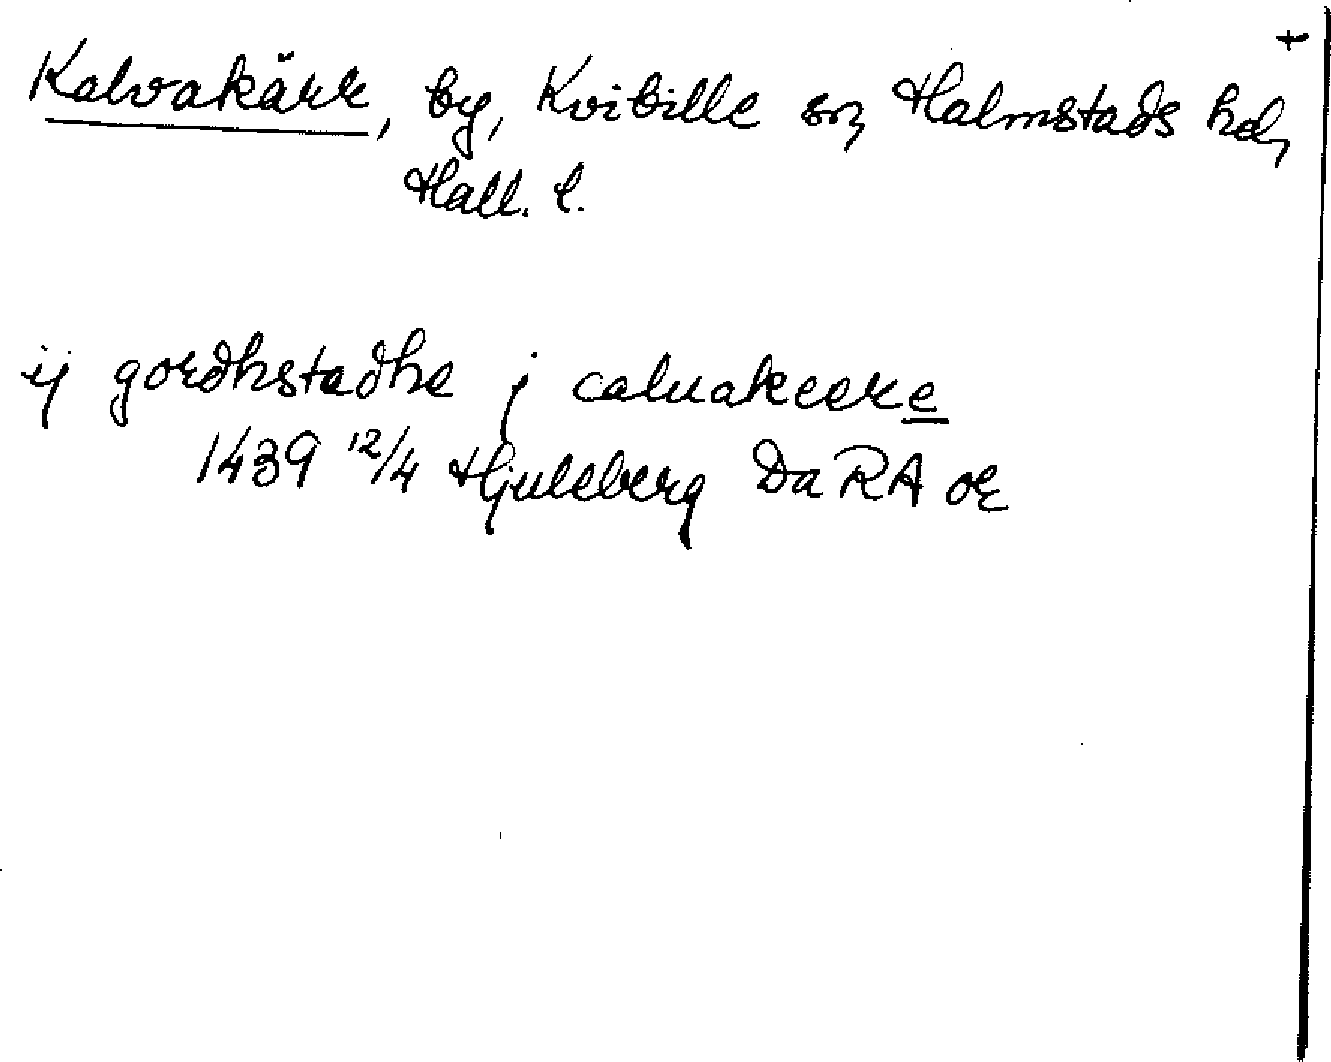 +
Kalvakärr, by, Kvibille sn, Halmstads hd,
Hall. l.
ij gordhstadhe j caluakerre
1439 12/4 Hjuleberg DaRA or